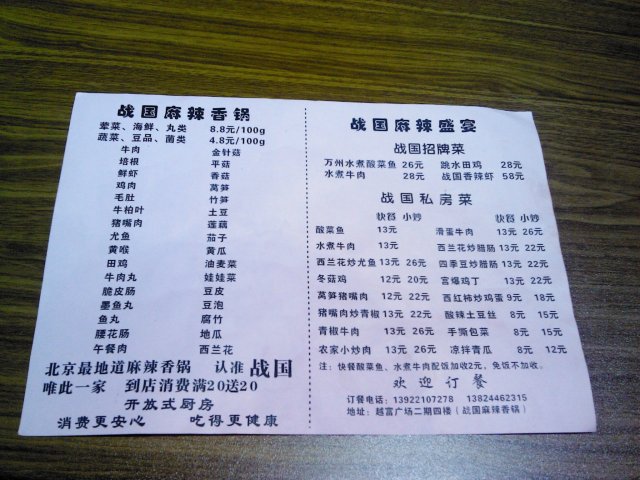 战国麻辣香锅
荤菜、海鲜、丸类 8.8元/100g
蔬菜、豆品、菌类 4.8元/100g
牛肉 金针菇
培根 平菇
鲜虾 香菇
鸡肉 莴笋
毛肚 竹笋
牛柏叶 土豆
猪嘴肉 莲藕
尤鱼 茄子
黄喉 黄瓜
田鸡 油麦菜
牛肉丸 娃娃菜
脆皮肠 豆皮
墨鱼丸 豆泡
鱼丸 腐竹
腰花肠 地瓜
午餐肉 西兰花
北京最地道麻辣香锅 认准战国
唯此一家 到店消费满20送20
开放式厨房
消费更安心 吃得更健康
战国麻辣盛宴
战国招牌菜
万州水煮酸菜鱼 26元 跳水田鸡 28元
水煮牛肉 28元 战国香辣虾 58元
战国私房菜
快餐 小炒 快餐 小炒
酸菜鱼 13元 滑蛋牛肉 13元 26元
水煮牛肉 13元 西兰花炒腊肠 13元 22元
西兰花炒尤鱼 13元 26元 四季豆炒腊肠 13元 22元
冬菇鸡 12元 20元 宫爆鸡丁 13元 22元
莴笋猪嘴肉 12元 22元 西红柿炒鸡蛋 9元 18元
猪嘴肉炒青椒 13元 22元 酸辣土豆丝 8元 15元
青椒牛肉 13元 26元 手撕包菜 8元 15元
农家小炒肉 13元 26元 凉拌青瓜 8元 12元
注：快餐酸菜鱼、水煮牛肉配饭加收2元，免饭不加收。
欢迎订餐
订餐电话：13922107278 13824462315
地址：越富广场二期四楼（战国麻辣香锅）